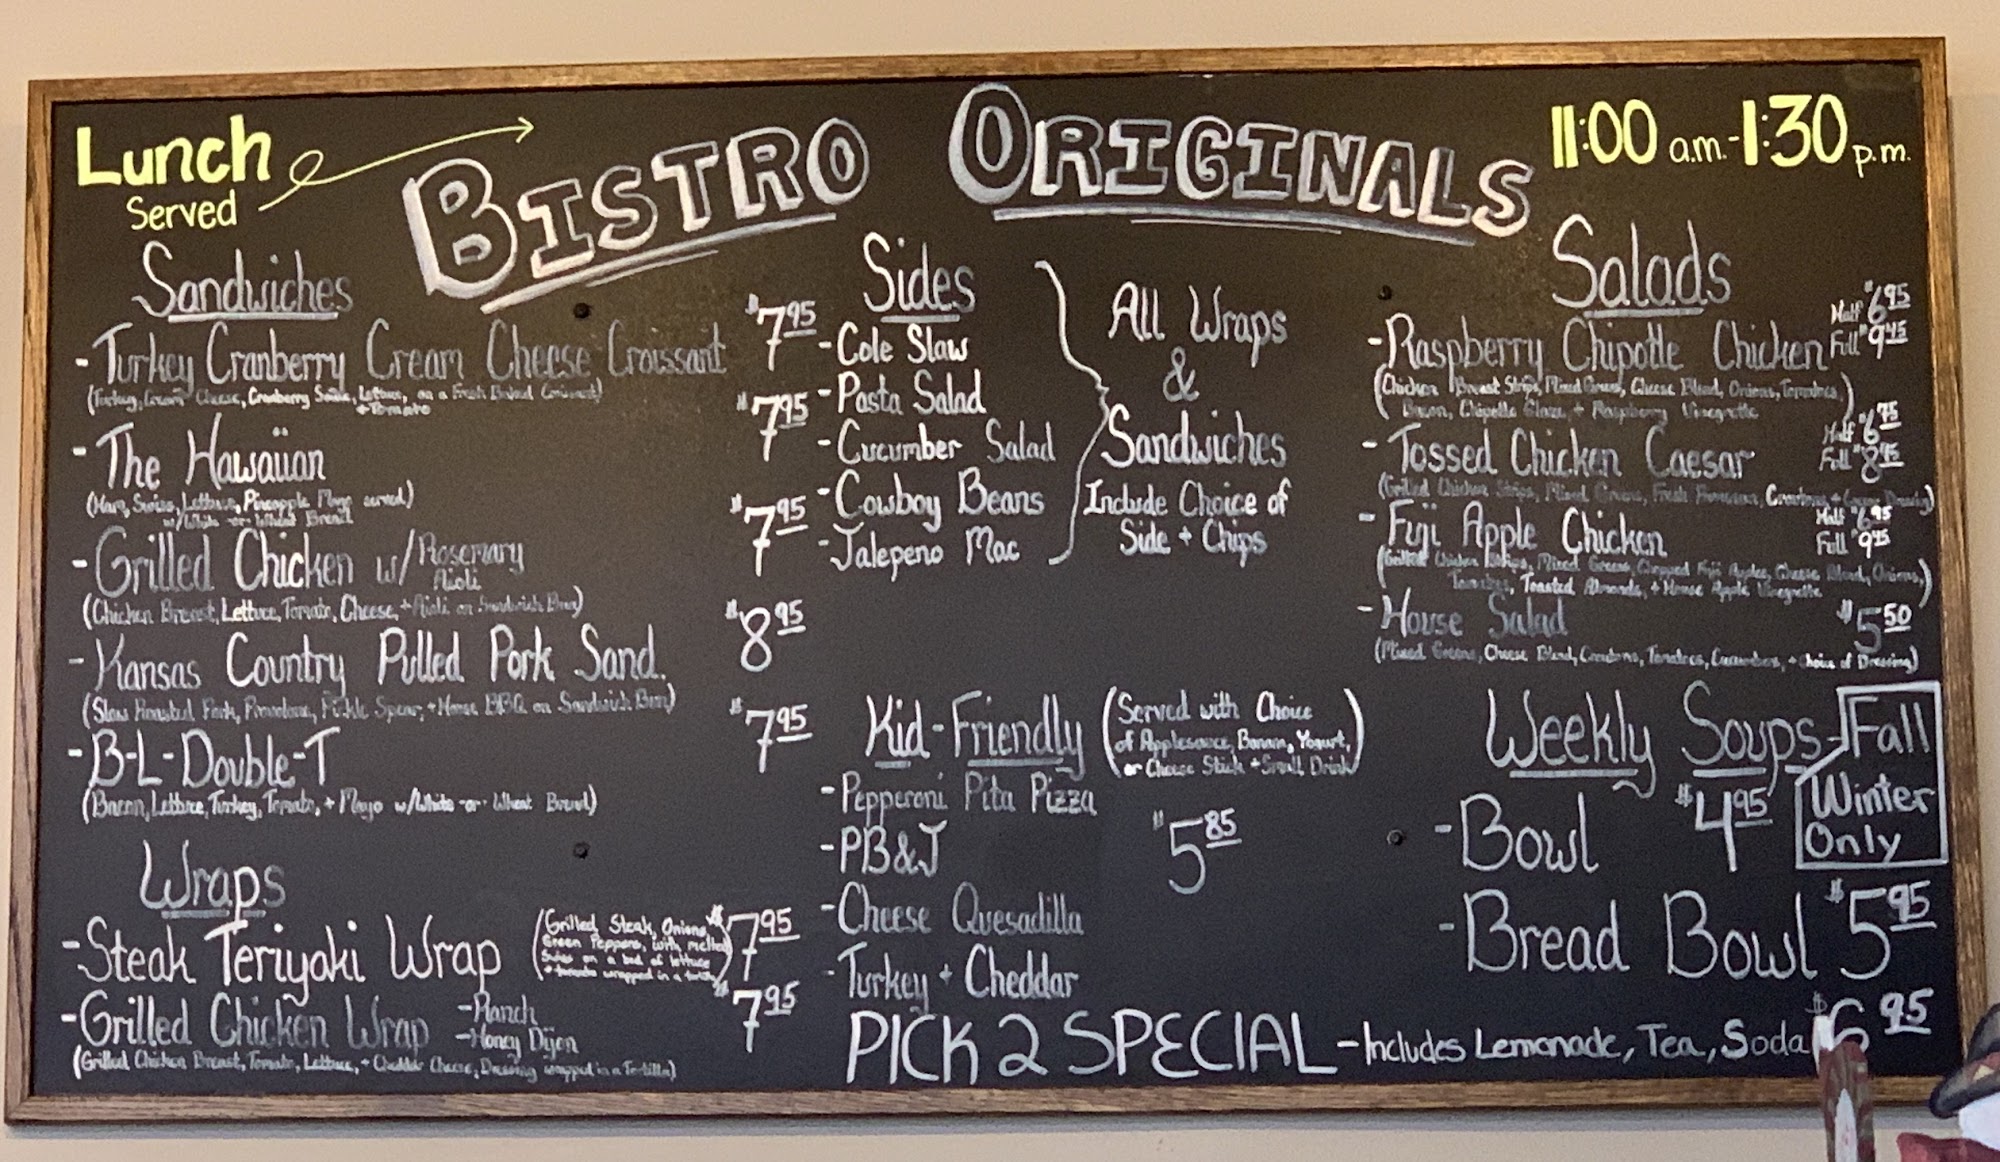 Lunch
Served
BISTRO ORIGINALS
11:00 a.m.-1:30 p.m.
Sandwiches
-Turkey Cranberry Cream Cheese Croissant $7.95
(Turkey, Cream Cheese, Cranberry Sauce, Lettuce, on a Fresh Baked Croissant)
+ Tomato
-The Hawaiian $7.95
(Ham, Swiss, Lettuce, Pineapple Mayo served)
w/White -or- Wheat Bread
-Grilled Chicken w/Rosemary $7.95
Aioli
(Chicken Breast, Lettuce, Tomato, Cheese, +Aioli on Sandwich Bun)
-Kansas Country Pulled Pork Sand. $8.95
(Slow Roasted Pork, Provolone, Pickle Spear, +House BBQ on Sandwich Bun)
-B-L-Double-T $7.95
(Bacon, Lettuce, Turkey, Tomato, + Mayo w/White -or- Wheat Bread)
Wraps
-Steak Teriyaki Wrap $7.95
(Grilled Steak, Onions,
Green Peppers, with melted
Swiss on a bed of lettuce
+ tomato wrapped in a
-Grilled Chicken Wrap -Ranch $7.95
-Honey Dijon
(Grilled Chicken Breast, Tomato, Lettuce, + Cheddar Cheese, Dressing wrapped in a Tortilla)
Sides
-Cole Slaw
-Pasta Salad
-Cucumber Salad
-Cowboy Beans
-Jalepeno Mac
All Wraps
&
Sandwiches
Include Choice of
Side + Chips
Kid-Friendly
(Served with Choice
of Applesauce, Banana, Yogurt,
or Cheese Stick + Small Drink)
-Pepperoni Pita Pizza
-PB&J
$5.85
-Cheese Quesadilla
-Turkey + Cheddar
Salads
-Raspberry Chipotle Chicken Half $6.95
Full $9.45
(Chicken Breast Strips, Mixed Greens, Cheese Blend, Onions, Tomatoes,
Bacon, Chipotle Glaze, + Raspberry Vinegrette)
-Tossed Chicken Caesar Half
Full $8.45
(Grilled Chicken Strips, Mixed Greens, Fresh Parmesan, Croutons, + Dressing)
-Fuji Apple Chicken Half $6.95
Full $9.45
(Grilled Chicken Mixed Greens, Chopped Fuji Apples, Cheese Blend, Onions,
Tomatoes, Toasted Almonds, + House Apple Vinegrette)
-House Salad $5.50
(Mixed Greens, Cheese Blend, Croutons, Tomatoes, Cucumbers, + Choice of Dressing)
Weekly Soups
Fall
Winter
Only
-Bowl $4.95
-Bread Bowl $5.95
PICK 2 SPECIAL -Includes Lemonade, Tea, Soda $6.95